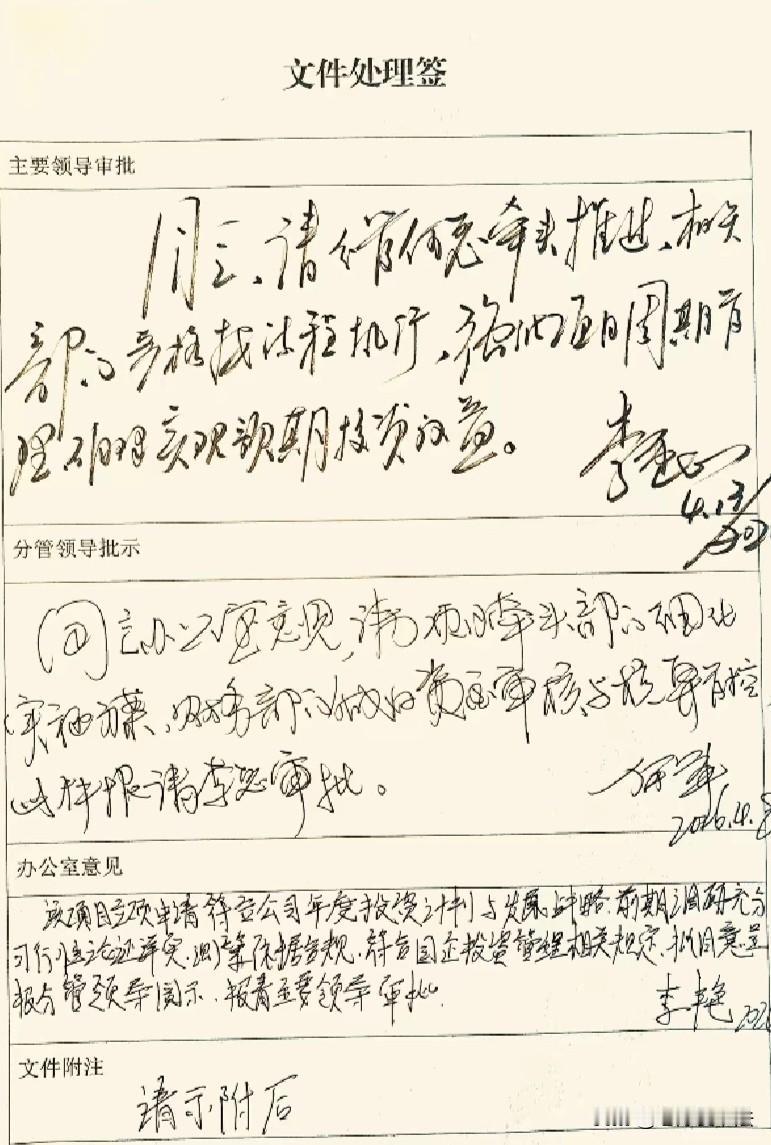 文件处理签
主要领导审批
同意、请分管何总牵头推进、相关
部门严格按流程执行、强化项目周期管
理确保实现预期投资效益。
李
4.13
分管领导批示
同意办公室意见,请项目牵头部门细化
实施方案、财务部门做好资金审核与核算管控
此件报请李总审批。
何军
2026.4.
办公室意见
该项目立项申请符合公司年度投资计划与发展战略.前期调研充分
可行性论证详实、测算依据合规.符合国企投资管理相关规定.拟同意呈
报分管领导阅示、报请主要领导审批.
李艳
文件附注
请示附后